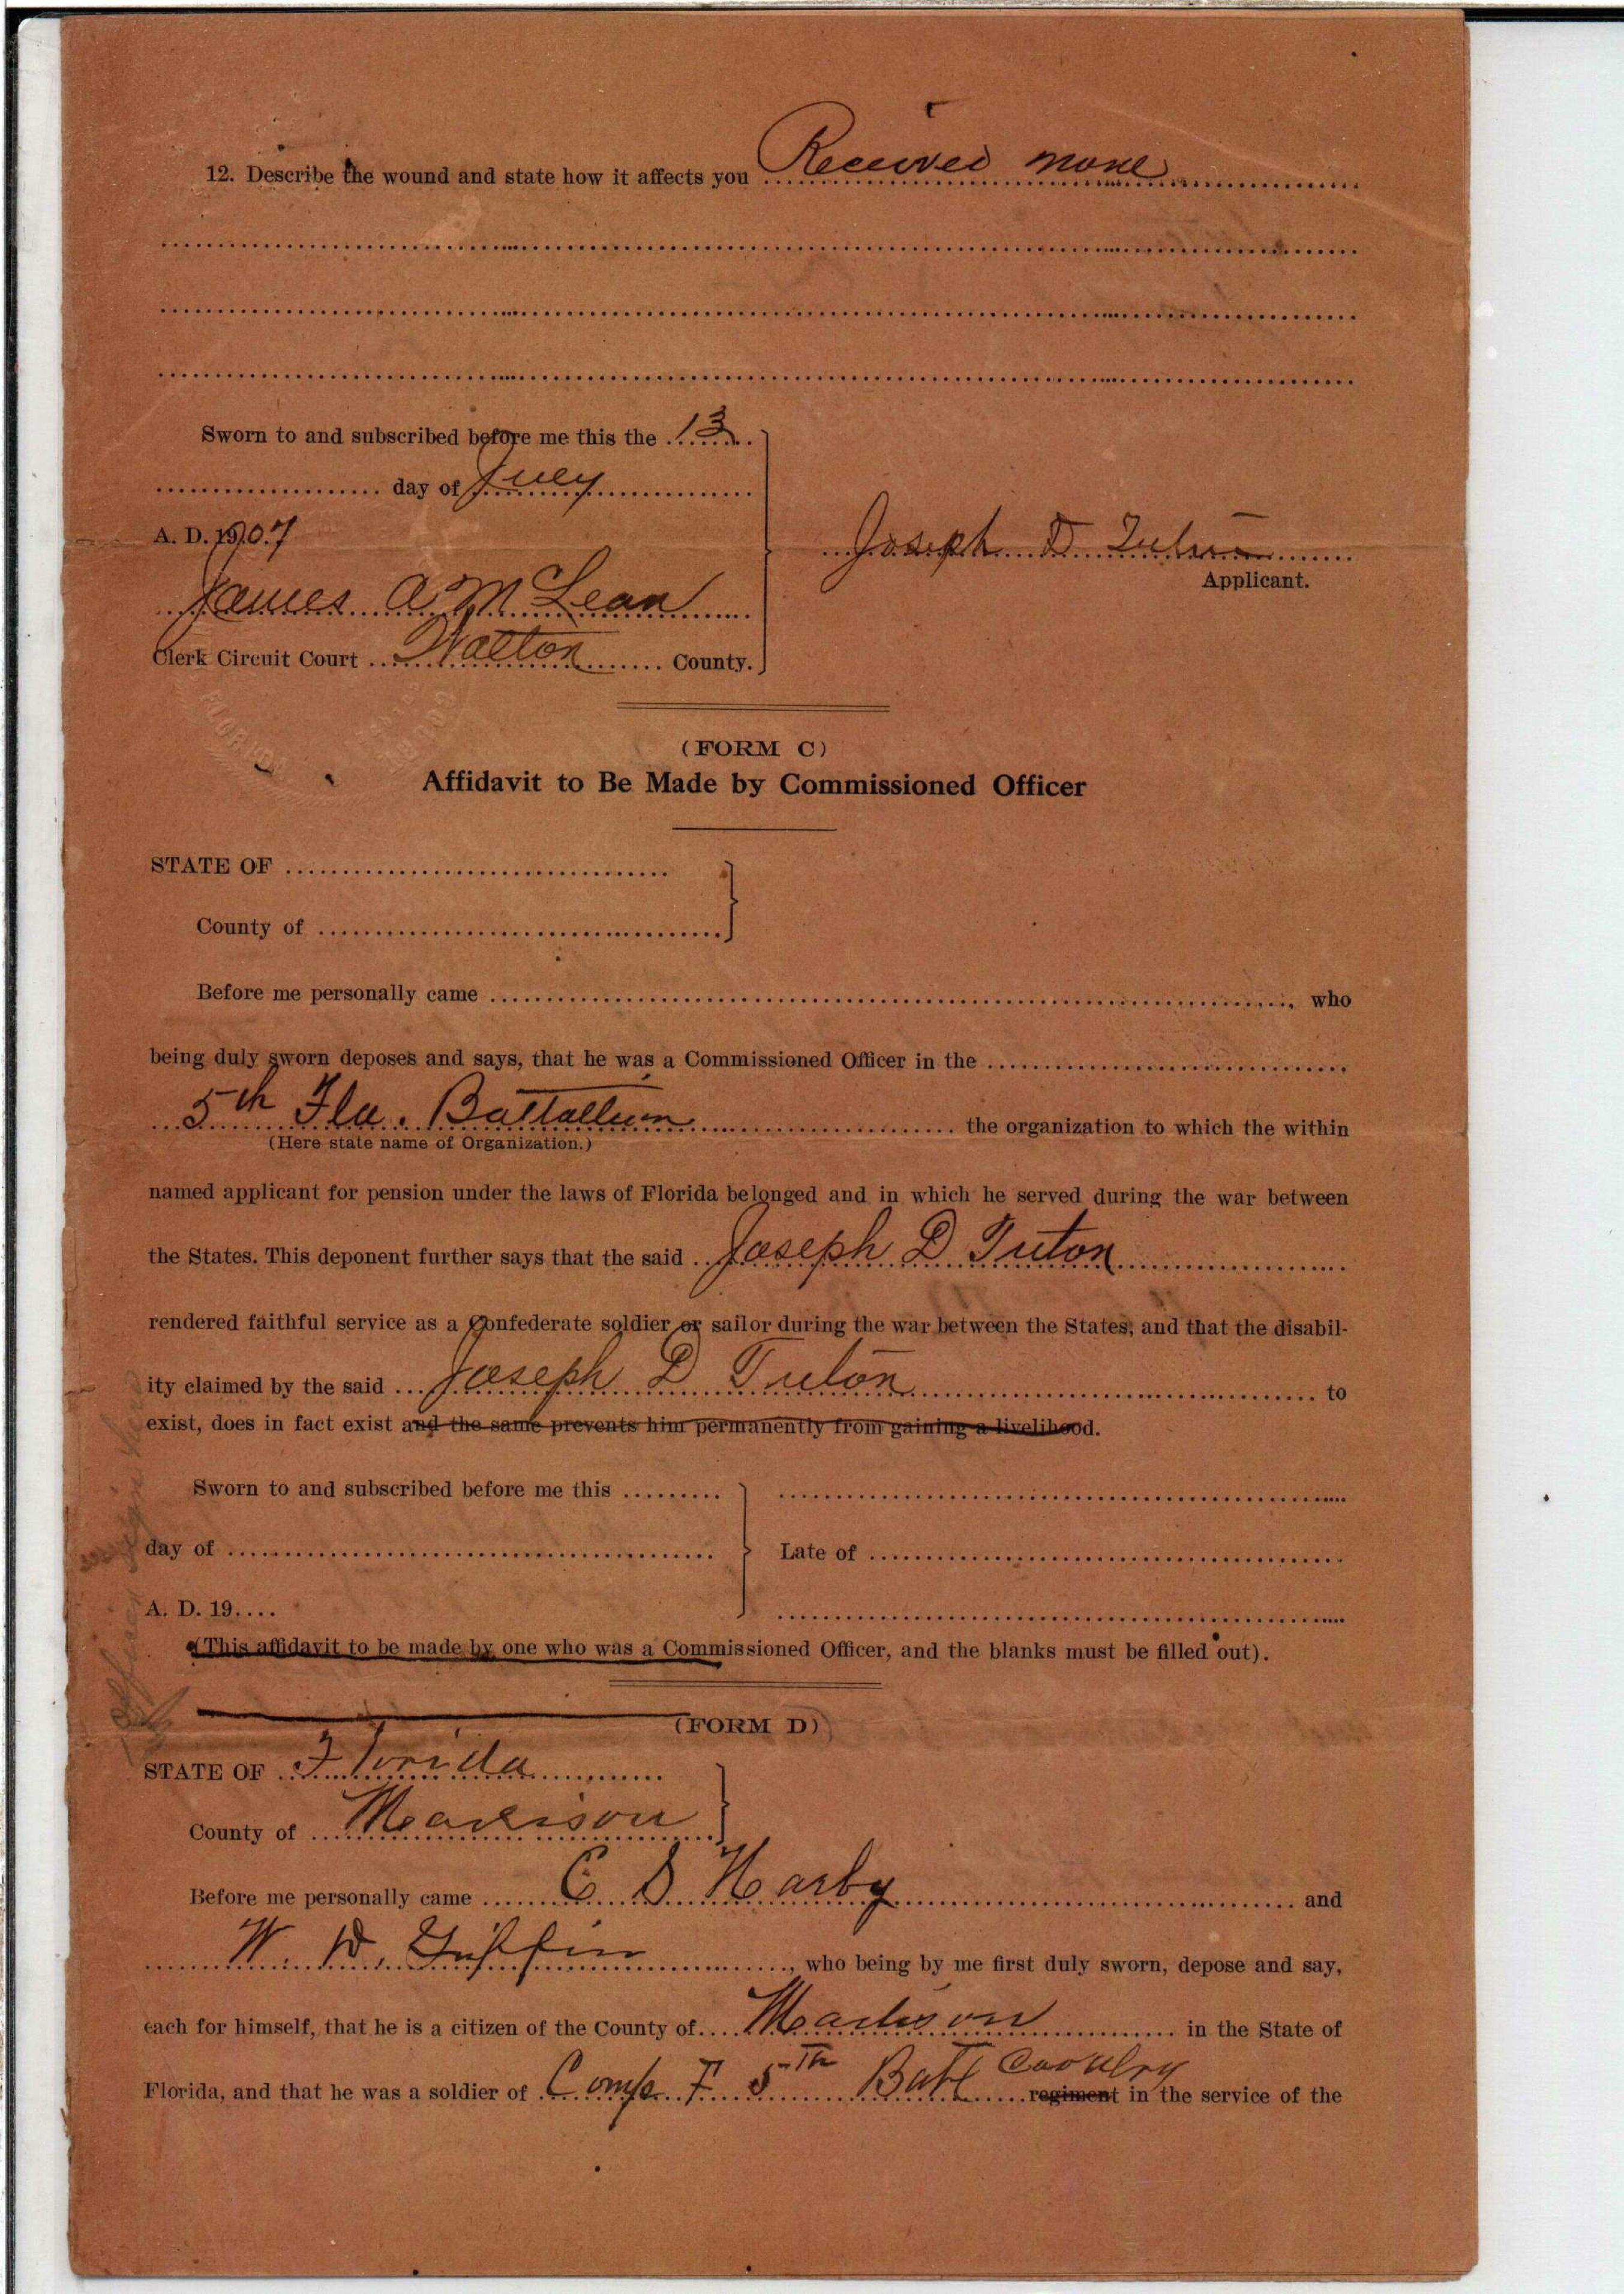 12. Describe the wound and state how it affects you Received none
Sworn to and subscribed before me this the 13
day of July
A. D. 1907
James A McLean
Clerk Circuit Court Walton County.
Joseph D Tuton
Applicant.
(FORM C)
Affidavit to Be Made by Commissioned Officer
STATE OF
County of
Before me personally came , who
being duly sworn deposes and says, that he was a Commissioned Officer in the
5th Fla. Battallion the organization to which the within
(Here state name of Organization.)
named applicant for pension under the laws of Florida belonged and in which he served during the war between
the States. This deponent further says that the said Joseph D Tuton
rendered faithful service as a Confederate soldier or sailor during the war between the States, and that the disabil-
ity claimed by the said Joseph D Tuton to
exist, does in fact exist and the same prevents him permanently from gaining a livelihood.
Sworn to and subscribed before me this
day of
Late of
A. D. 19
(This affidavit to be made by one who was a Commissioned Officer, and the blanks must be filled out).
(FORM D)
STATE OF Florida
County of Madison
Before me personally came C S Harby and
W. D. Griffin, who being by me first duly sworn, depose and say,
each for himself, that he is a citizen of the County of Madison in the State of
Florida, and that he was a soldier of Comp F 5th Batl Cavalry regiment in the service of the